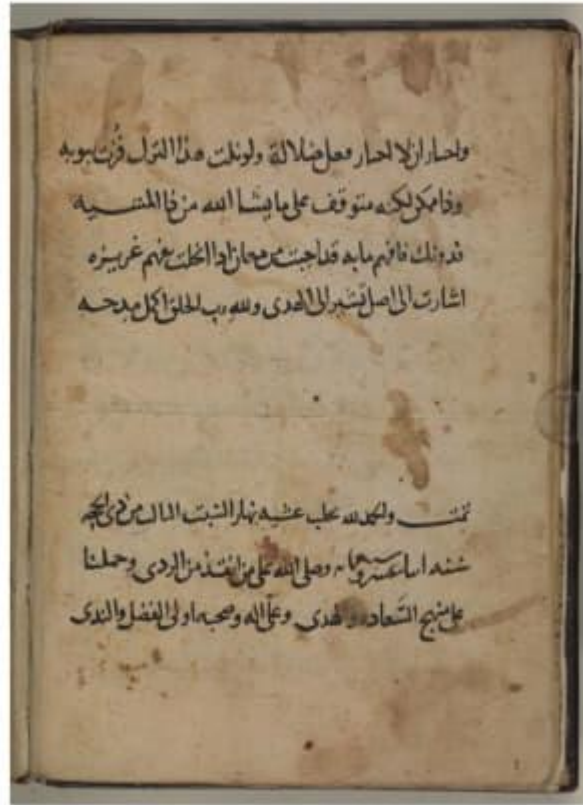 واختار ان لا اختار فعل ضلالة ولو نلت هذا الترك فزت بتوبه
وذا ممكن لكنه متوقف على ما يشا الله من ذا المشيه
فدونك فافهم ما به قد اجبت من معان اذا انحلت بفهم غريزه
اشارت الى اصل تشير الى الهدى ولله رب الخلق اكمل مدحه
تمت والحمد لله بحلب عشيه نهار السبت الثالث من ذي الحجه
سنه وصلى الله على من انقذ من الردى وحملنا
على منهج السعاده والهدى وعلى اله وصحبه اولى الفضل والندى